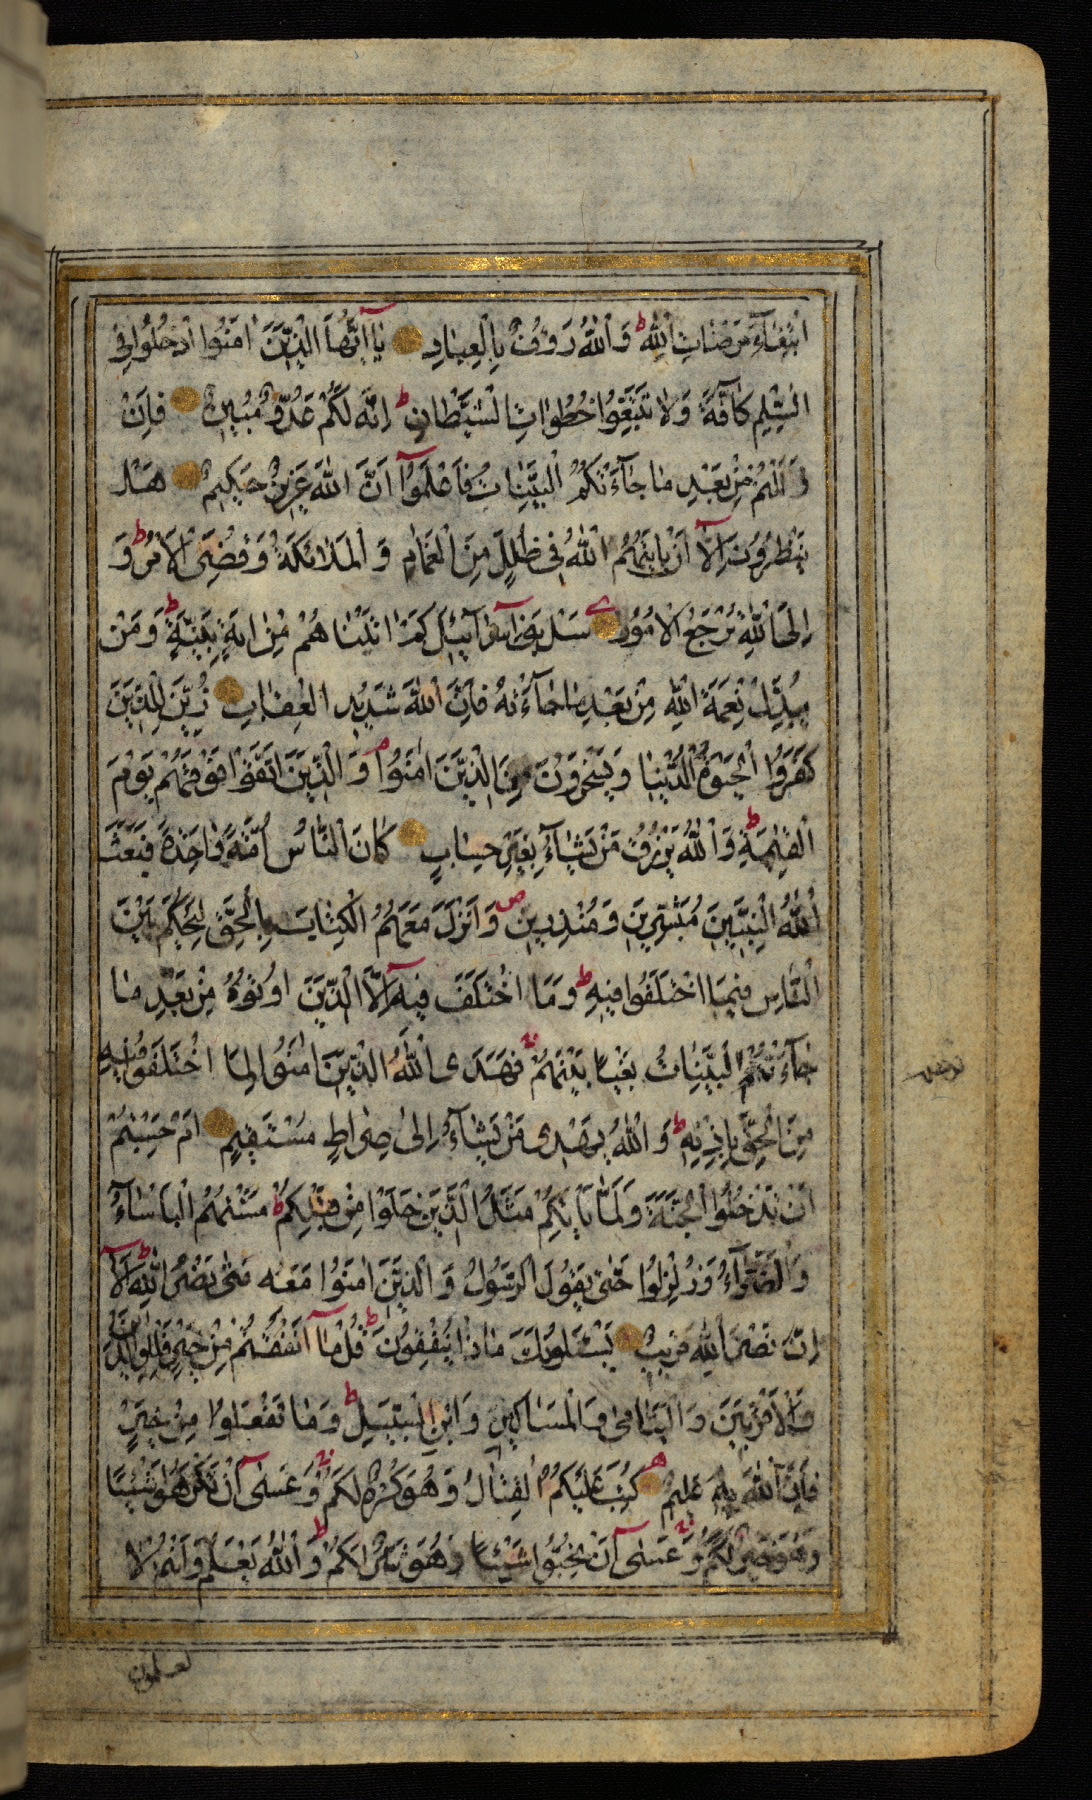 ابْتِغَآءَ مَرْضَاتِ اللّٰهِ ط وَاللّٰهُ رَؤُفٌ بِالْعِبَادِ يَآ اَيُّهَا الَّذِينَ اٰمَنُوا ادْخُلُوا فِى
السِّلْمِ كَآفَّةً وَلَا تَتَّبِعُوا خُطُوَاتِ الشَّيْطَانِ ط اِنَّهُ لَكُمْ عَدُوٌّ مُبِينٌ فَاِنْ
زَلَلْتُمْ مِنْ بَعْدِ مَا جَآءَتْكُمُ الْبَيِّنَاتُ فَاعْلَمُوآ اَنَّ اللّٰهَ عَزِيزٌ حَكِيمٌ هَلْ
يَنْظُرُونَ اِلَّآ اَنْ يَاْتِيَهُمُ اللّٰهُ فِى ظُلَلٍ مِنَ الْغَمَامِ وَالْمَلَائِكَةُ وَقُضِىَ الْاَمْرُ ط وَ
اِلَى اللّٰهِ تُرْجَعُ الْاُمُورُ سَلْ بَنِىٓ اِسْرَآئِيلَ كَمْ اٰتَيْنَاهُمْ مِنْ اٰيَةٍ بَيِّنَةٍ ط وَمَنْ
يُبَدِّلْ نِعْمَةَ اللّٰهِ مِنْ بَعْدِ مَا جَآءَتْهُ فَاِنَّ اللّٰهَ شَدِيدُ الْعِقَابِ زُيِّنَ لِلَّذِينَ
كَفَرُوا الْحَيٰوةُ الدُّنْيَا وَيَسْخَرُونَ مِنَ الَّذِينَ اٰمَنُوا م وَالَّذِينَ اتَّقَوْا فَوْقَهُمْ يَوْمَ
الْقِيٰمَةِ ط وَاللّٰهُ يَرْزُقُ مَنْ يَشَآءُ بِغَيْرِ حِسَابٍ كَانَ النَّاسُ اُمَّةً وَاحِدَةً فَبَعَثَ
اللّٰهُ النَّبِيِّينَ مُبَشِّرِينَ وَمُنْذِرِينَ ص وَاَنْزَلَ مَعَهُمُ الْكِتَابَ بِالْحَقِّ لِيَحْكُمَ بَيْنَ
النَّاسِ فِيمَا اخْتَلَفُوا فِيهِ ط وَمَا اخْتَلَفَ فِيهِ اِلَّا الَّذِينَ اُوتُوهُ مِنْ بَعْدِ مَا
جَآءَتْهُمُ الْبَيِّنَاتُ بَغْيًا بَيْنَهُمْ فَهَدَى اللّٰهُ الَّذِينَ اٰمَنُوا لِمَا اخْتَلَفُوا فِيهِ
مِنَ الْحَقِّ بِاِذْنِهِ ط وَاللّٰهُ يَهْدِى مَنْ يَشَآءُ اِلَىٰ صِرَاطٍ مُسْتَقِيمٍ اَمْ حَسِبْتُمْ
اَنْ تَدْخُلُوا الْجَنَّةَ وَلَمَّا يَاْتِكُمْ مَثَلُ الَّذِينَ خَلَوْا مِنْ قَبْلِكُمْ ط مَسَّتْهُمُ الْبَاْسَآءُ
وَالضَّرَّآءُ وَزُلْزِلُوا حَتّٰى يَقُولَ الرَّسُولُ وَالَّذِينَ اٰمَنُوا مَعَهُ مَتٰى نَصْرُ اللّٰهِ ط اَلَآ
اِنَّ نَصْرَ اللّٰهِ قَرِيبٌ يَسْئَلُونَكَ مَاذَا يُنْفِقُونَ ط قُلْ مَآ اَنْفَقْتُمْ مِنْ خَيْرٍ فَلِلْوَالِدَيْنِ
وَالْاَقْرَبِينَ وَالْيَتَامٰى وَالْمَسَاكِينِ وَابْنِ السَّبِيلِ ط وَمَا تَفْعَلُوا مِنْ خَيْرٍ
فَاِنَّ اللّٰهَ بِهِ عَلِيمٌ كُتِبَ عَلَيْكُمُ الْقِتَالُ وَهُوَ كُرْهٌ لَكُمْ وَعَسٰىٓ اَنْ تَكْرَهُوا شَيْئًا
وَهُوَ خَيْرٌ لَكُمْ وَعَسٰىٓ اَنْ تُحِبُّوا شَيْئًا وَهُوَ شَرٌّ لَكُمْ ط وَاللّٰهُ يَعْلَمُ وَاَنْتُمْ لَا
تعلمون